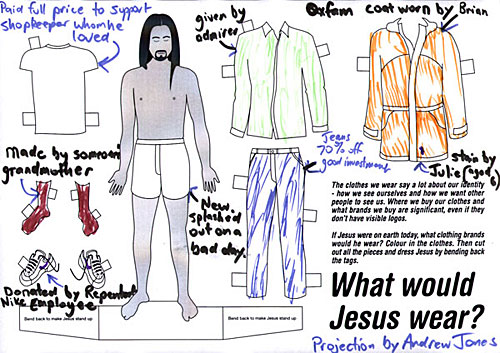 Paid full price to support
shopkeeper whom he
loved
given by
admirer
Oxfam coat worn by Brian
Jeans
70% off
good investment
stain by
Julie (aged
6)
Made by
grandmother
New.
splashed
out on a
bad day.
Donated by Repentant
Nike Employee
The clothes we wear say a lot about our identity
- how we see ourselves and how we want other
people to see us. Where we buy our clothes and
what brands we buy are significant, even if they
don't have visible logos.
If Jesus were on earth today, what clothing brands
would he wear? Colour in the clothes. Then cut
out all the pieces and dress Jesus by bending back
the tags.
What would
Jesus wear?
Bend back to make Jesus stand up
Bend back to make Jesus stand up
Projection by Andrew Jones